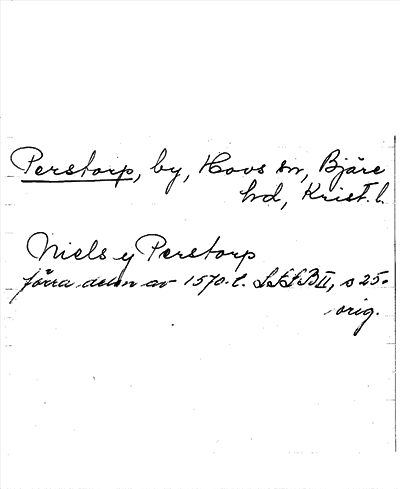 Perstorp, by, Hovs sn, Bjäre
hd, Krist. l.
Niels y Perstorp
förra delen av 1570-t. LSSB II, s 25.
orig.